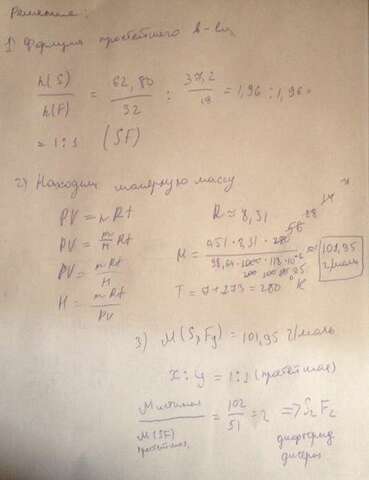 Решение:
1) Формула простейшего в-ва
n(S) / n(F) = 62,80 / 32 : 37,2 / 19 = 1,96 : 1,96
= 1:1 (SF)
2) Находим молярную массу
PV = nRt
R ≈ 8,31
PV = m/M Rt
PV = mRt / M
M = mRt / PV
T = 7+273 = 280 °K
101,95 г/моль
3) M(SxFy) = 101,95 г/моль
x:y = 1:1 (простейшая)
M истинная / M(SF) простейшая = 102 / 51 = 2 => S2F2
дифторид
дисеры